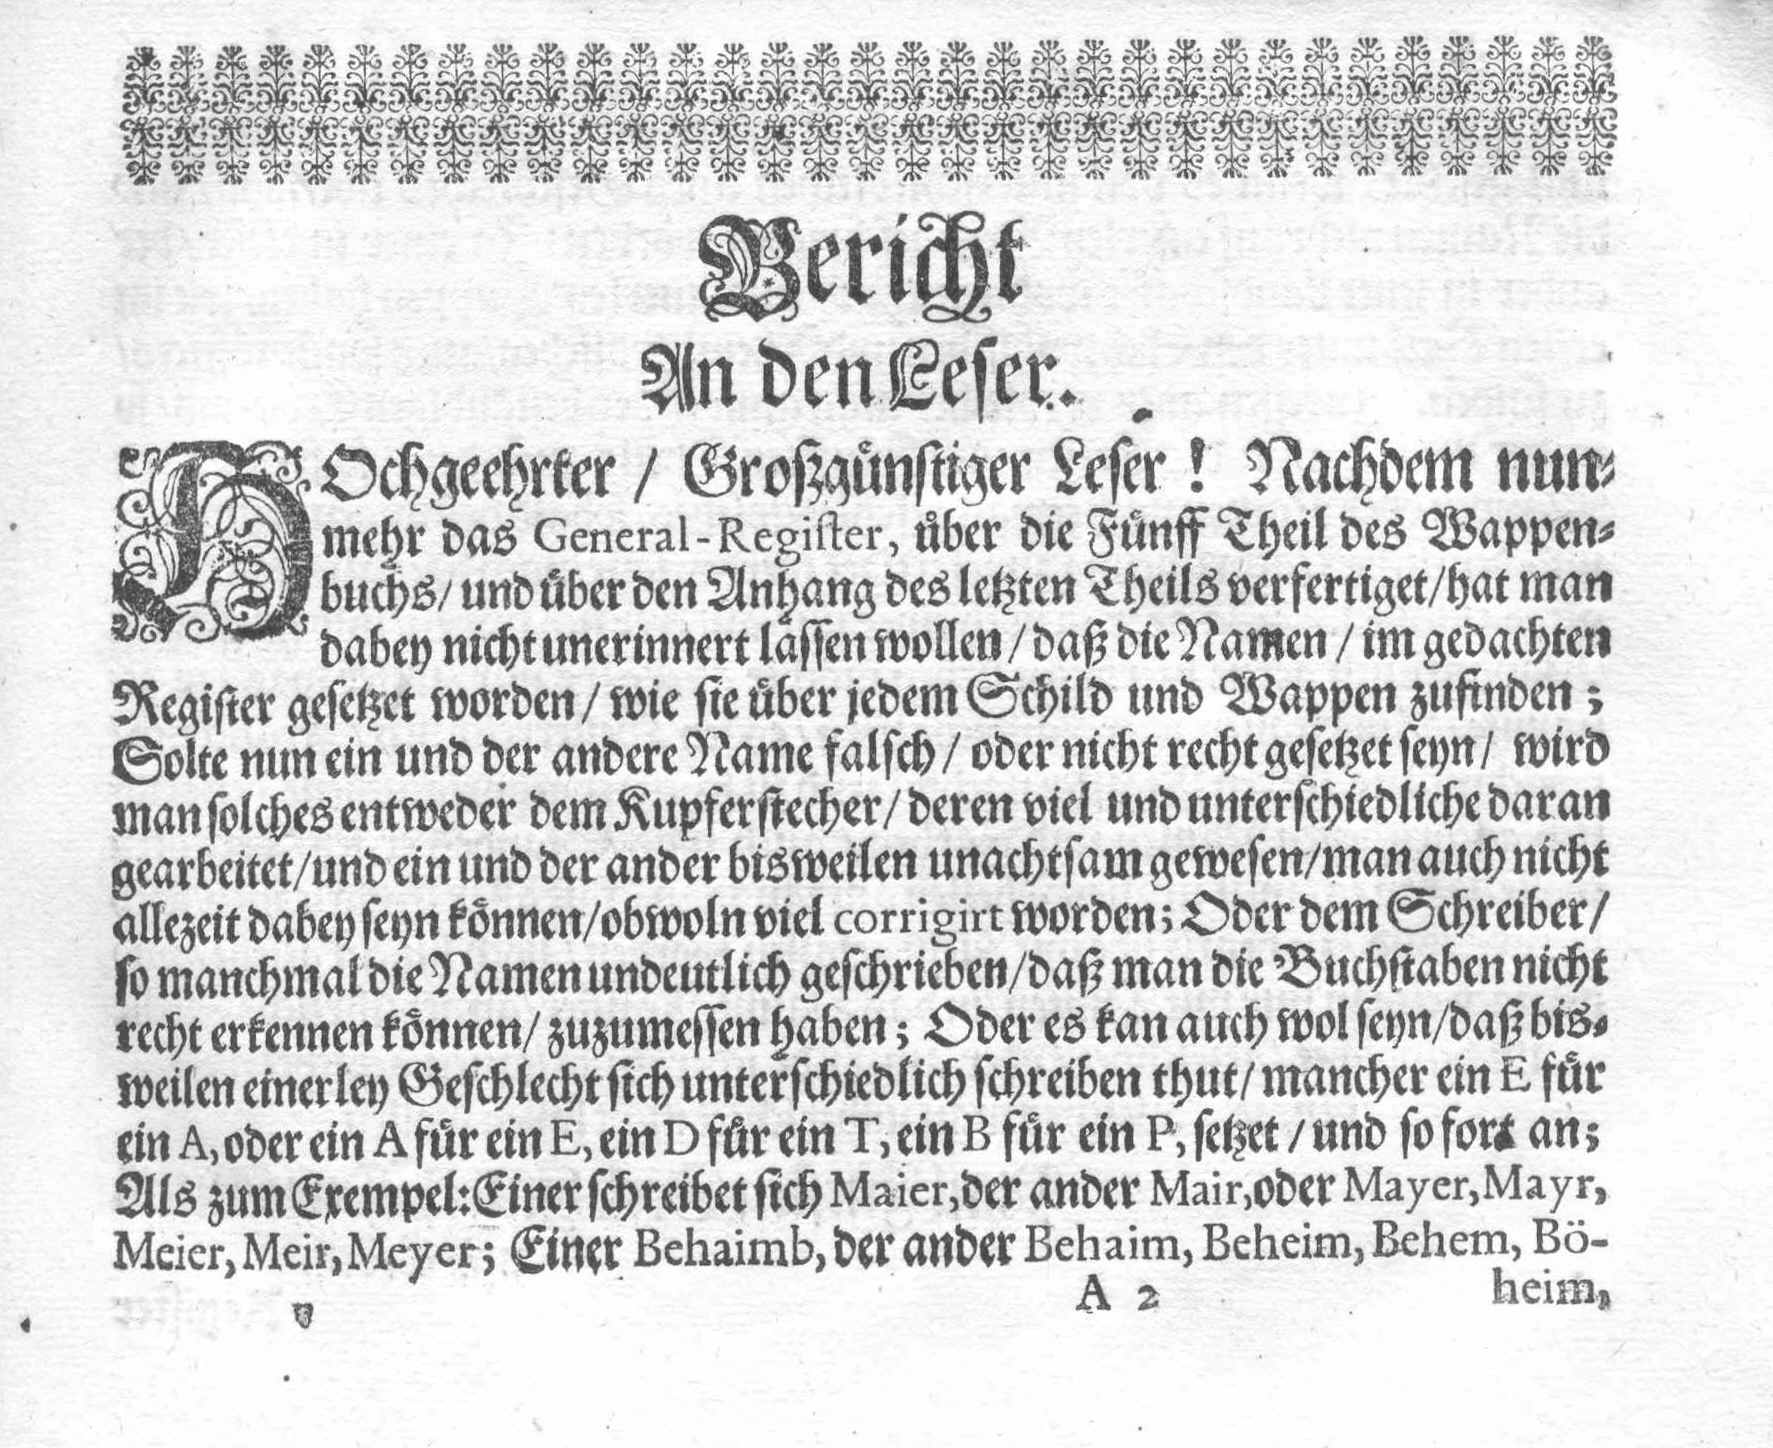 Bericht
An den Leser.
HOchgeehrter / Großgünstiger Leser ! Nachdem nun-
mehr das General-Register, über die Fünff Theil des Wappen-
buchs / und über den Anhang des letzten Theils verfertiget / hat man
dabey nicht unerinnert lassen wollen / daß die Namen / im gedachten
Register gesetzet worden / wie sie über jedem Schild und Wappen zufinden ;
Solte nun ein und der andere Name falsch / oder nicht recht gesetzet seyn / wird
man solches entweder dem Kupferstecher / deren viel und unterschiedliche daran
gearbeitet / und ein und der ander bisweilen unachtsam gewesen / man auch nicht
allezeit dabey seyn können / obwoln viel corrigirt worden; Oder dem Schreiber /
so manchmal die Namen undeutlich geschrieben / daß man die Buchstaben nicht
recht erkennen können / zuzumessen haben ; Oder es kan auch wol seyn / daß bis-
weilen einerley Geschlecht sich unterschiedlich schreiben thut / mancher ein E für
ein A, oder ein A für ein E, ein D für ein T, ein B für ein P, setzet / und so fort an;
Als zum Exempel: Einer schreibet sich Maier, der ander Mair, oder Mayer, Mayr,
Meier, Meir, Meyer; Einer Behaimb, der ander Behaim, Beheim, Behem, Bö-
A 2 heim,